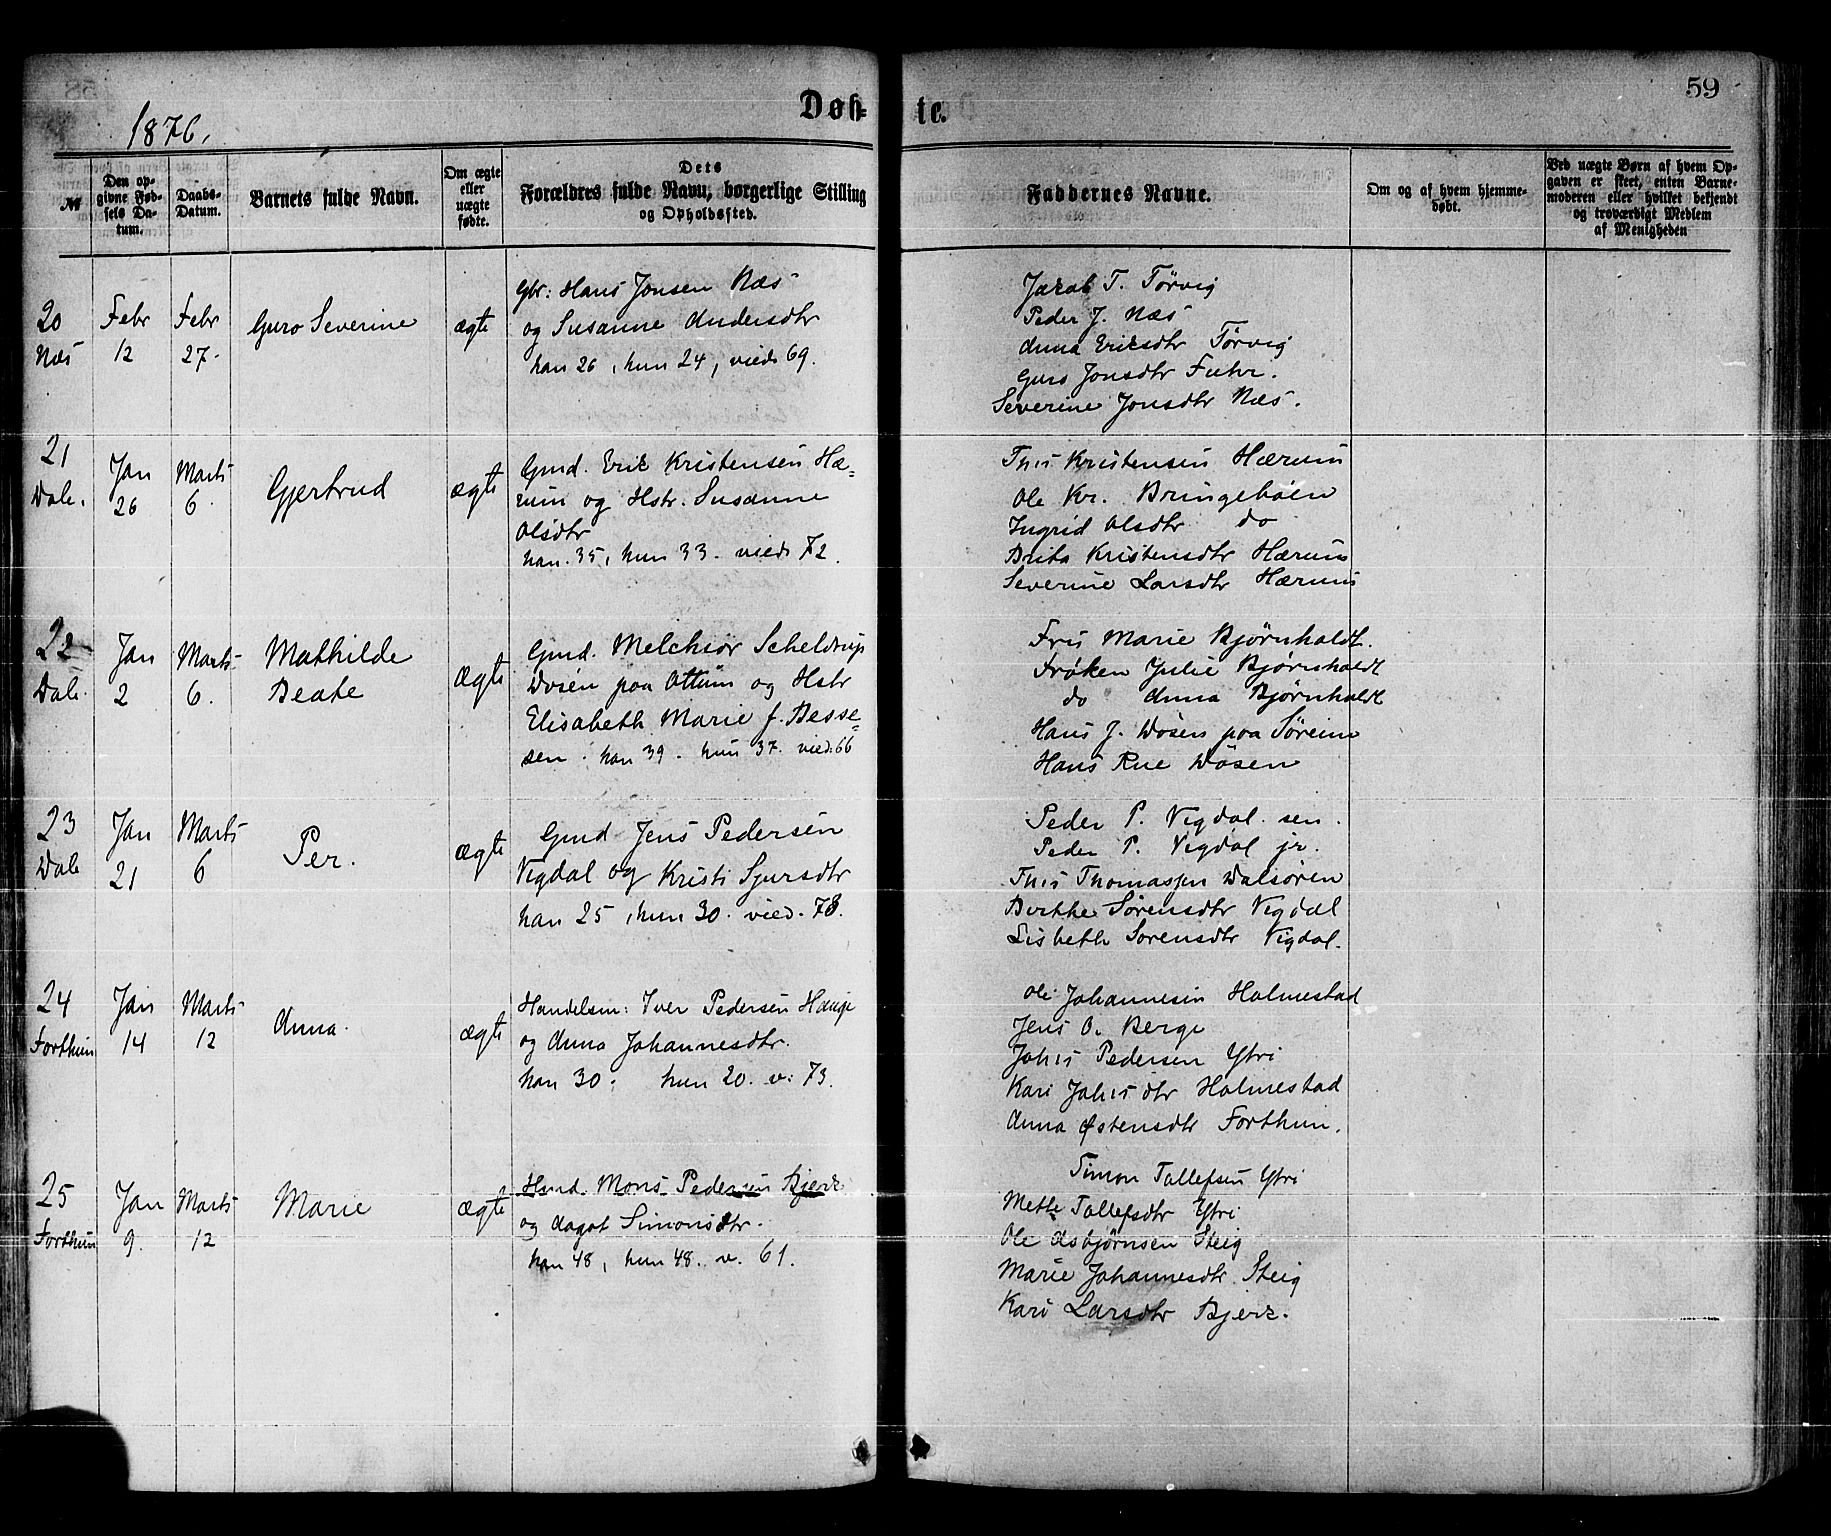 59
1876.
Døb-
te.
№
Den op-
givne Fød-
sels Da-
tum.
Daabs-
Datum.
Barnets fulde Navn.
Om ægte
eller
uægte
fødte.
Dets
Forældres fulde Navn, borgerlige Stilling
og Opholdssted.
Faddernes Navne.
Om og af hvem hjemme-
døbt.
Ved uægte Børn af hvem Op-
gaven er skeet, enten Barne-
moderen eller hvilket bekjendt
og troværdigt Medlem
af Menigheden
20
Næs
Febr
12
Febr
27.
Guro Severine
ægte
Gbr: Hans Jonsen Næs
og Susanne Andersdtr
han 26, hun 24, viede 69.
Jakob T. Tørvig
Peder J. Næs
Anna Eriksdtr Tørvig
Guro Jonsdtr Fuhr.
Severine Jonsdtr Næs.
21
Dale.
Jan
26
Marts
6.
Gjertrud
ægte
Gmd. Erik Kristensen Hæ=
rum og Hstr. Susanne
Olsdtr
han 35, hun 33. viede 72.
Ths Kristensen Hærum
Ole Kr. Bringebøen
Ingrid Olsdtr do
Brita Kristensdtr Hærum
Severine Larsdtr Hærum
22
Dale.
Jan
2
Marts
6.
Mathilde
Beate
ægte
Gmd. Melchior Scheldrup
Døsen paa Ottum og Hstr
Elisabeth Marie f. Besse=
sen. han 39. hun 37. vied. 66
Fru Marie Bjørnholdt.
Frøken Julie Bjørnholdt
do Anna Bjørnholdt
Hans J. Døsen paa Søreim
Hans Rue Døsen
23
Dale
Jan
21
Marts
6
Per.
ægte
Gmd Jens Pedersen
Vigdal og Kristi Sjursdtr
han 25, hun 30. vied. 73.
Peder P. Vigdal sen.
Peder P. Vigdal jr.
Ths Thomassen Dalsøren
Berthe Sørensdtr Vigdal
Lisbeth Sørensdtr Vigdal.
24
Forthun
Jan
14
Marts
12
Anna.
ægte
Handelsm: Iver Pedersen Hauge
og Anna Johannesdtr.
han 30. hun 20. v. 73.
Ole Johannesen Holmestad
Jens O. Berge
Johs Pedersen Ytri
Kari Johs dtr Holmestad
Anna Østensdtr Forthun.
25
Forthun
Jan
9.
Marts
12
Marie
ægte
Hmd. Mons Pedersen Bjerk
og Aagot Simonsdtr.
han 48, hun 48. v. 61.
Simon Tollefsen Ytri
Mette Tollefsdtr Ytri
Ole Asbjørnsen Steig
Marie Johannesdtr Steig
Kari Larsdtr Bjerk.